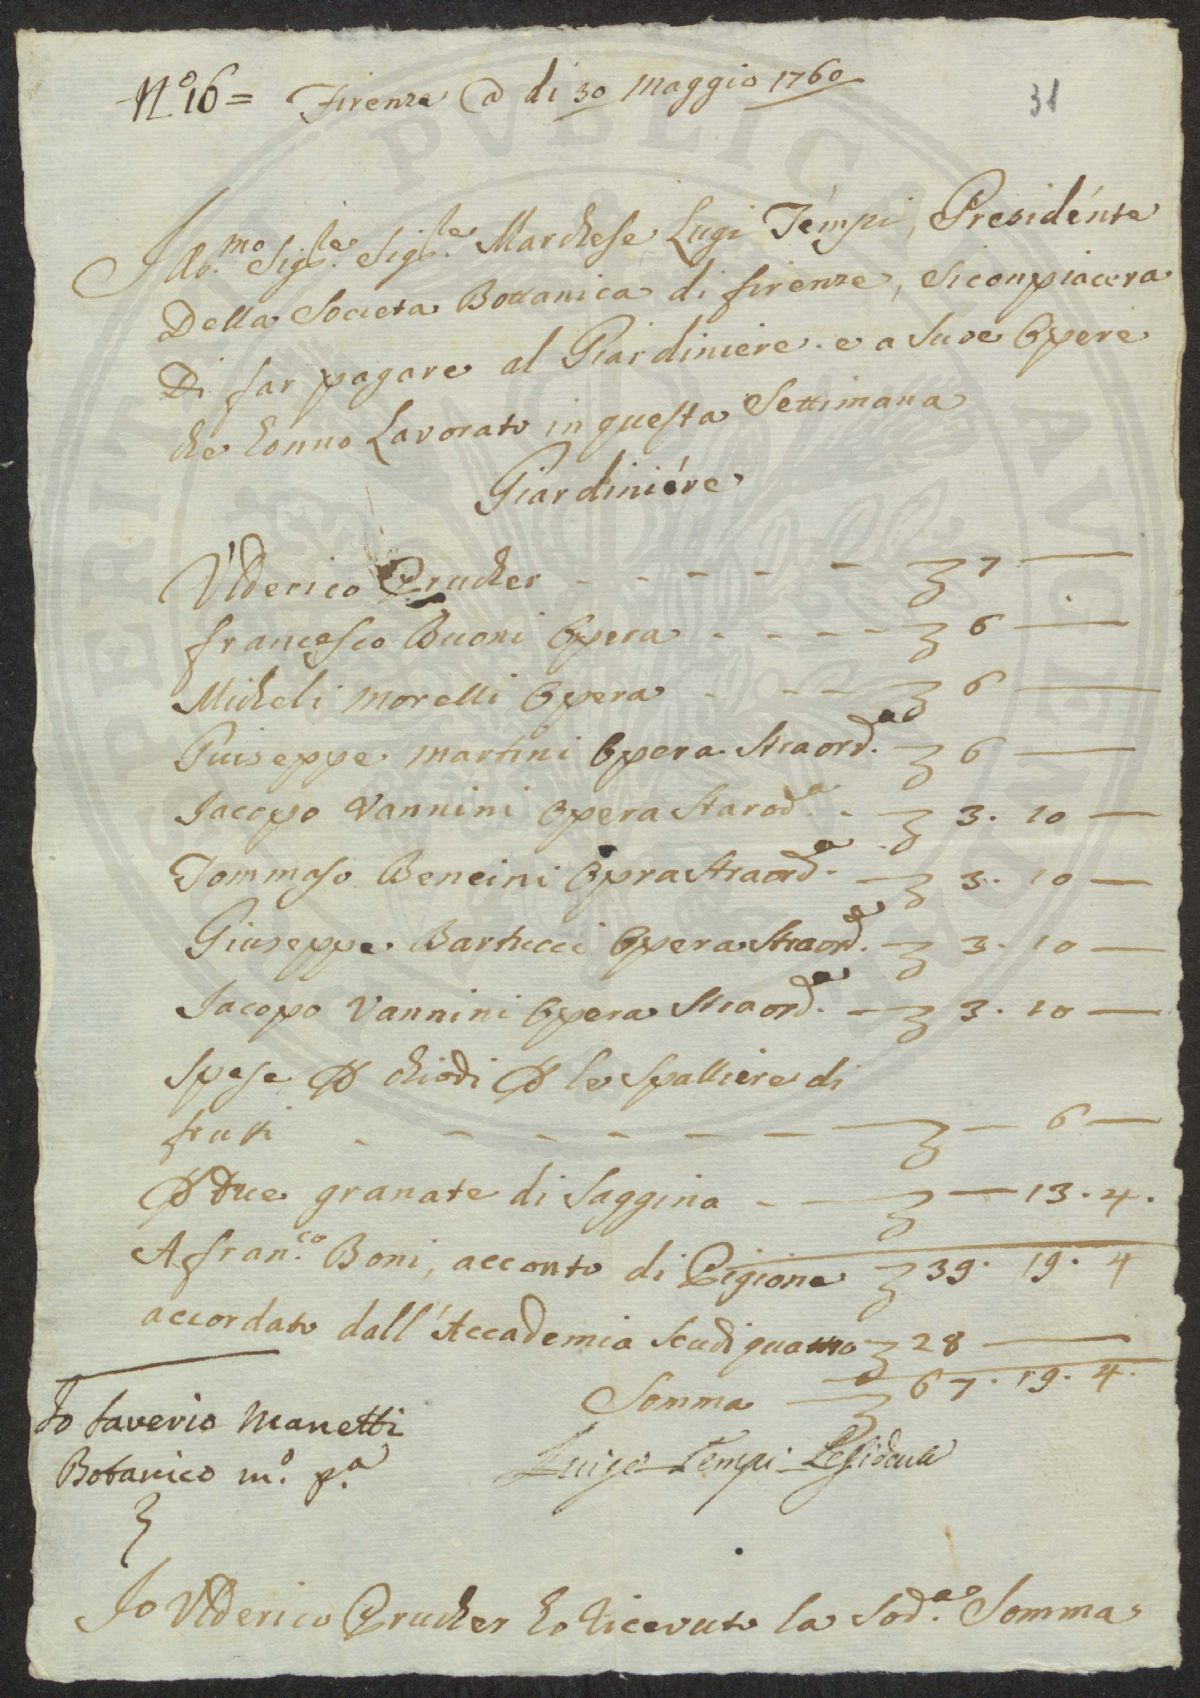 N.º 16 = Firenze a di 30 Maggio 1760
31
Ill.mo Sig.le Sig.le Marchese Lugi Tempi, Presidénte
Della Societa Bottanica di firenze, si conpiacera
Di far pagare al Giardiniere e a sue Opere
che honno Lavorato in questa Settimana
Giardiniére
Vlderico Prucher - - - - - 7 —
francesco Buoni Opera - - - - 6 —
Micheli Morelli Opera - - - 6 —
Guiseppe Martini Opera Straord.a 6 —
Jacopo Vannini Opera Starod.a - 3. 10 —
Tommaso Bencini Opra Straord.a — 3. 10 —
Giuseppe Bartucci Opera Straord.a — 3. 10 —
Jacopo Vannini Opera Straord.a — 3. 10 —
Spese P chiodi P le Spalliere di
fruti - - - - - - — 6 —
P Due granate di Saggina - — — 13. 4.
A fran.co Boni, acconto di Pigione 39. 19. 4
accordato dall'Accademia Scudi quatro 28 —
Somma — 67. 19. 4.
Io Saverio Manetti
Botanico m.o p.a
Luigi Tempi Presidente
Io Vlderico Prucher ho ricevuto la Sod.a Somma
PVBLICA